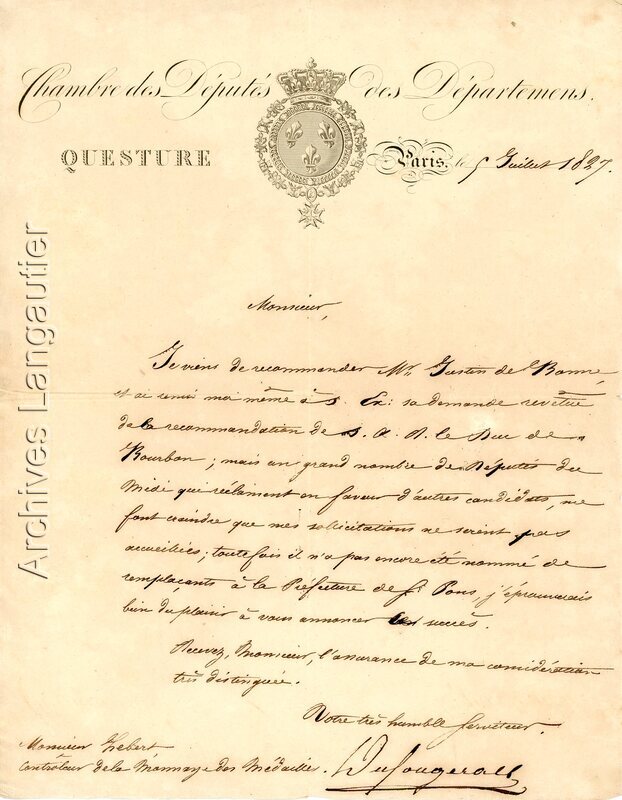 Chambre des Députés des Départemens.
QUESTURE
Paris, le 5 Juillet 1827.
Archives Langautier
Monsieur,
Je viens de recommander Mr. Justin de Banne,
et ai remis moi même à S. Ex: sa demande revetue
de la recommandation de S. A. R. le Duc de
Bourbon; mais un grand nombre de Députés du
Midi qui réclament en faveur d'autres candidats, me
font craindre que mes sollicitations ne soient pas
accueillies; toutefois il n'a pas encore été nommé de
remplaçants à la Préfecture de St. Pons, j'éprouverais
bien du plaisir à vous annoncer un succès.
Recevez, Monsieur, l'assurance de ma considération
très distinguée.
Votre très humble serviteur.
Monsieur hebert
Contrôleur de la Monnaye des Médailles.
Dufougerais